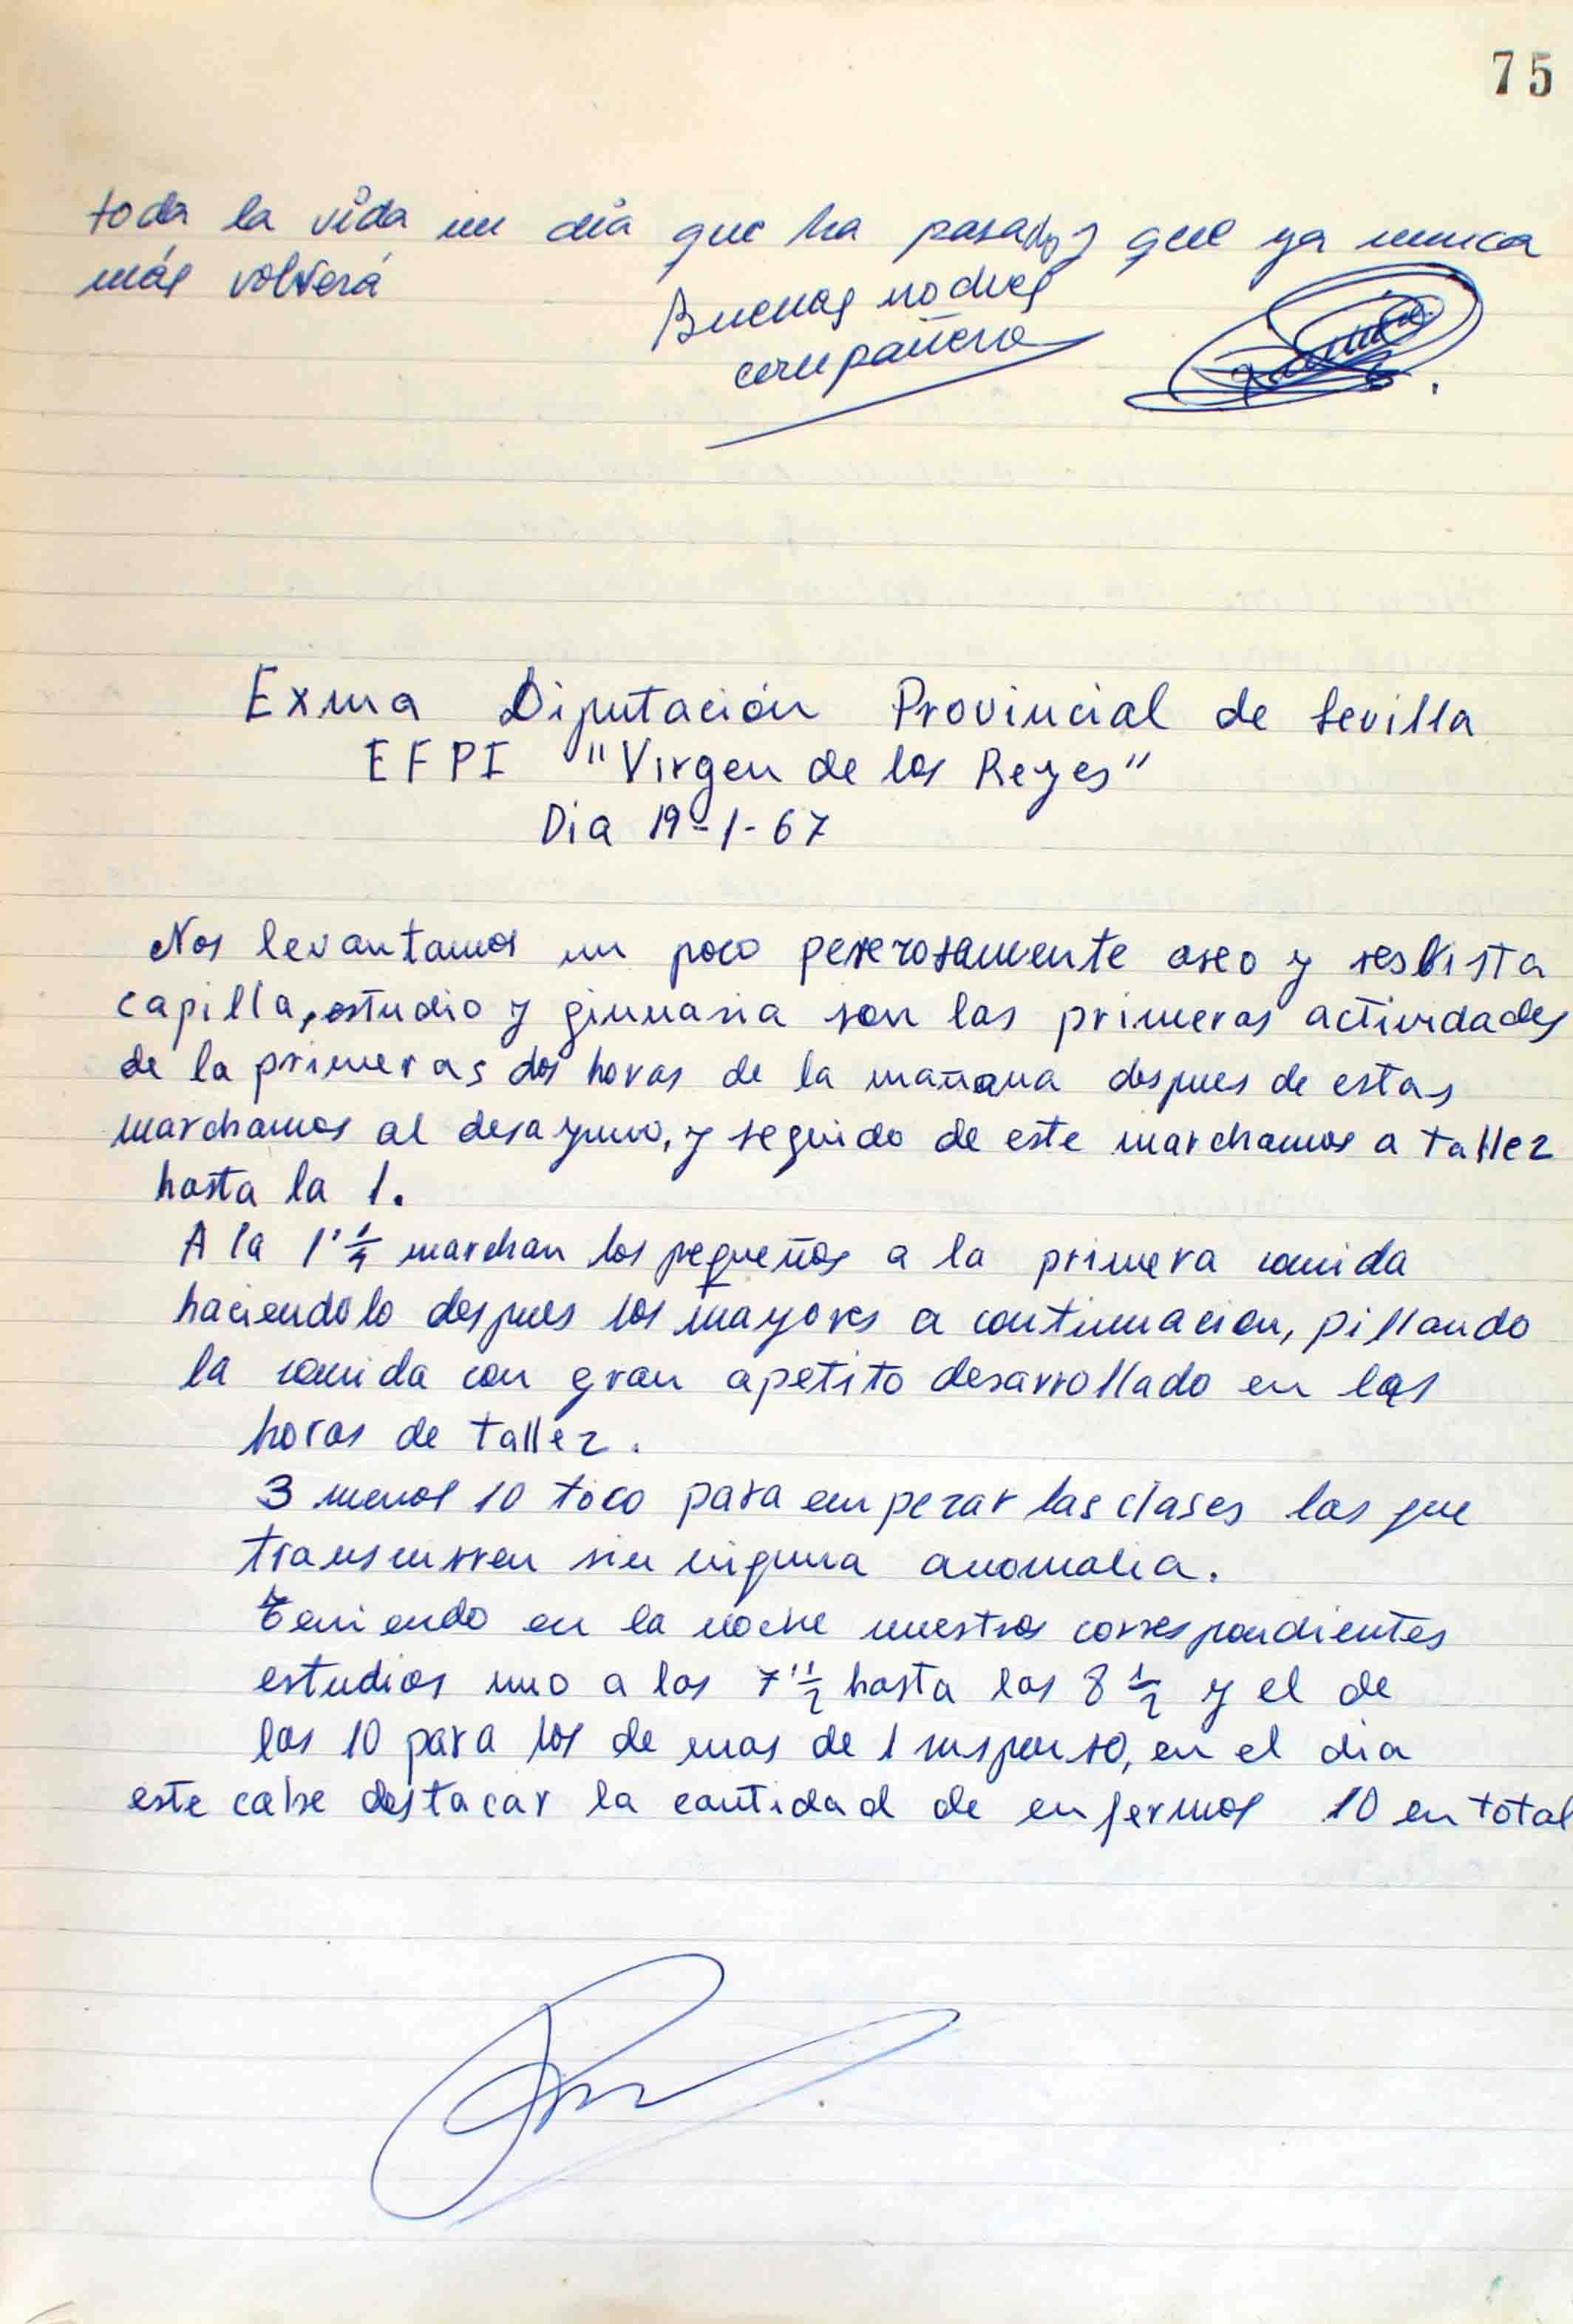 75
toda la vida un dia que ha pasado, y que ya nunca
más volverá
Buenas noches
compañero
Exma Diputación Provincial de Sevilla
EFPI "Virgen de los Reyes"
Dia 19-1-67
Nos levantamos un poco pererosamente aseo y resvista
capilla, estudio y ginnasia son las primeras actividades
de la primeras dos horas de la mañana despues de estas
marchamos al desayuno, y seguido de este marchamos a taller
hasta la 1.
A la 1'¼ marchan los pequeños a la primera comida
haciendolo despues los mayores a continuacion, pillando
la comida con gran apetito desarrollado en las
horas de taller.
3 menos 10 toco para emperar las clases las que
transcurren sin niguna anomalia.
teniendo en la noche nuestros correspondientes
estudios uno a las 7'½ hasta las 8 ½ y el de
las 10 para los de mas de 1 suspenso, en el dia
este cabe destacar la cantidad de enfermos 10 en total